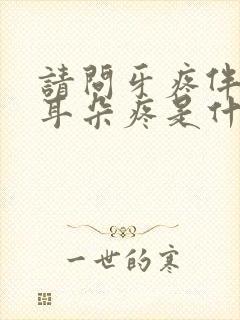 請問牙疼伴
耳朵疼是什
一世的寒